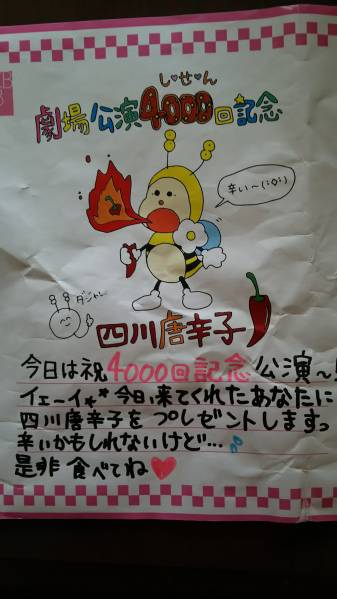 し・せ・ん
劇場公演4000回記念
辛い〜(;o;)
ダントレー
四川唐辛子
今日は祝4000回記念公演〜!
イェーイ** 今日、来てくれたあなたに
四川唐辛子をプレゼントしますっ
辛いかもしれないけど…
是非 食べてね♥